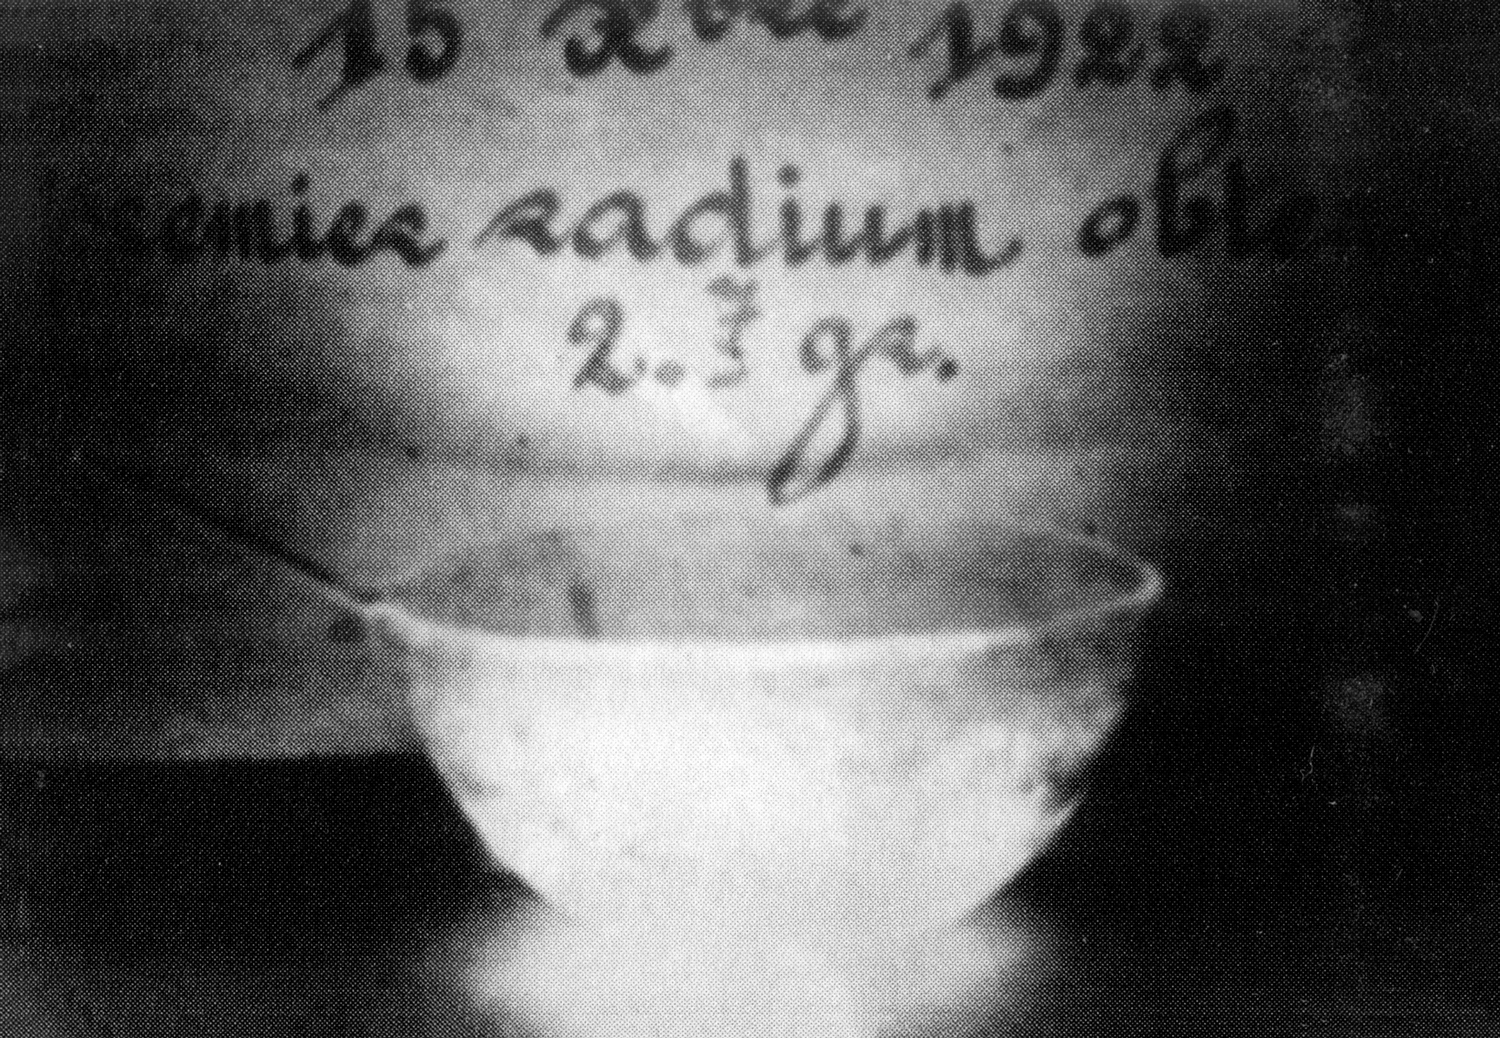 15 Xbre 1922
remier radium obte
2.7 gr.